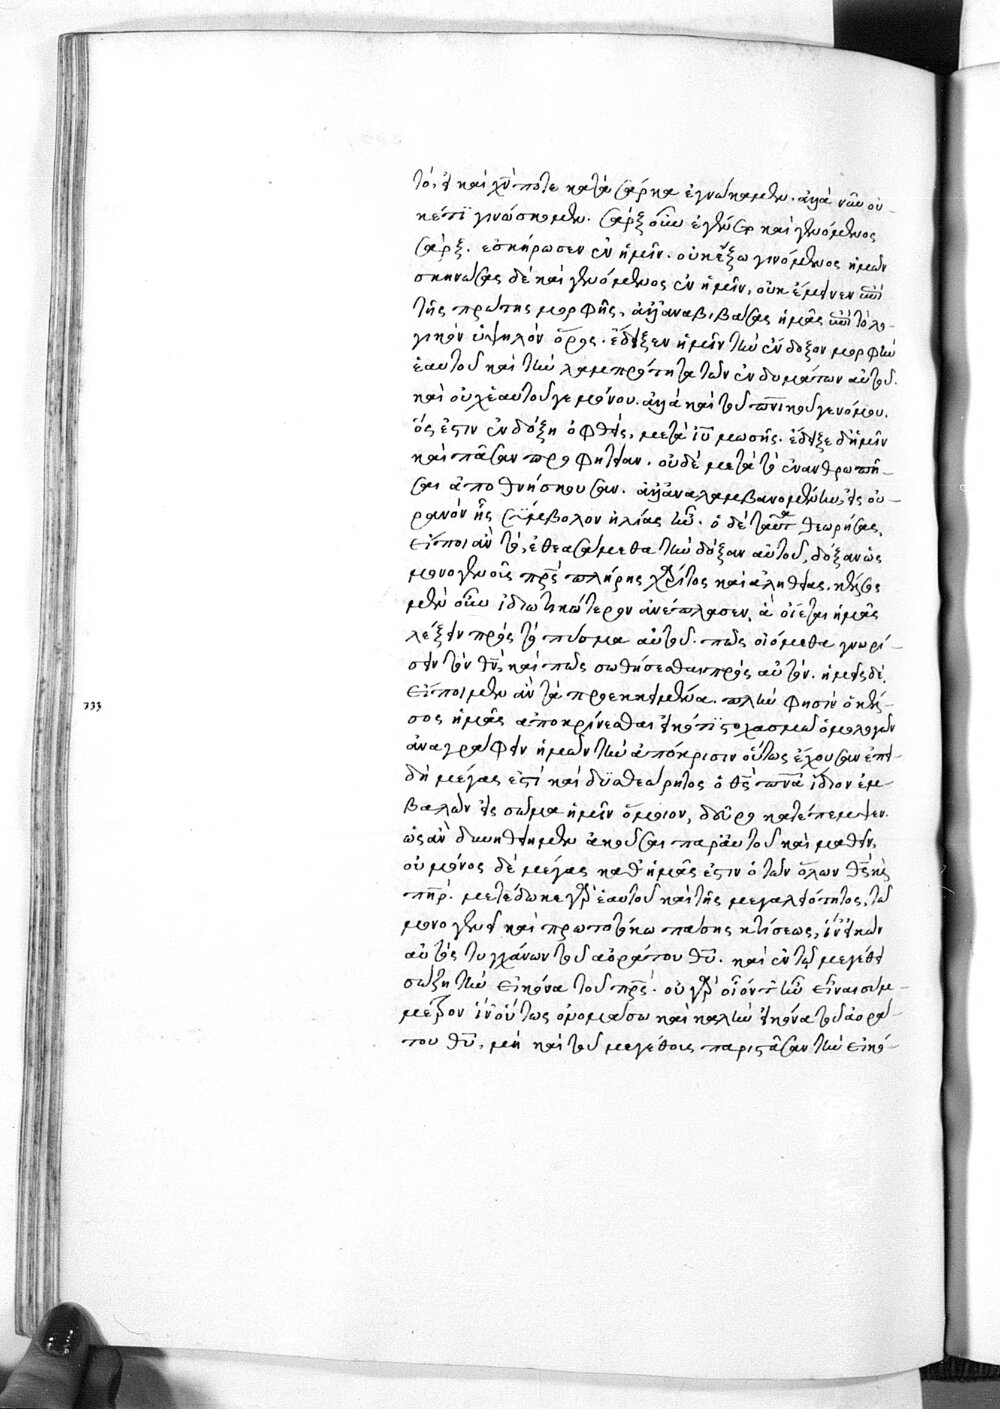 τό, εἰ καὶ χν ποτε κατὰ σάρκα ἐγνώκαμεν. ἀλλὰ νῦν οὐ-
κέτι γινώσκομεν. σὰρξ οὖν ἐγένετο καὶ γενόμενος
σάρξ. ἐσκήνωσεν ἐν ἡμῖν. οὐκ ἔξω γινόμενος ἡμῶν
σκηνώσας δὲ καὶ γενόμενος ἐν ἡμῖν, οὐκ ἔμεινεν ἐπὶ
τῆς πρώτης μορφῆς, ἀλλ' ἀναβιβάσας ἡμᾶς ἐπὶ τὸ λο-
γικὸν ὑψηλὸν ὄρος. ἔδειξεν ἡμῖν τὴν ἔνδοξον μορφὴν
ἑαυτοῦ καὶ τὴν λαμπρότητα τῶν ἐνδυμάτων αὐτοῦ.
καὶ οὐχ ἑαυτοῦ γε μόνου. ἀλλὰ καὶ τοῦ πνικοῦ νόμου.
ὅς ἐστιν ἐν δόξῃ ὀφθεὶς, μετὰ ιυ μωσῆς. ἔδειξε δ' ἡμῖν
καὶ πᾶσαν προφητείαν. οὐδὲ μετὰ τὸ ἐνανθρωπῆ-
σαι ἀποθνήσκουσαν. ἀλλ' ἀναλαμβανομένην εἰς οὐ-
ρανὸν ἧς σύμβολον ἠλίας ἦν. ὁ δὲ ταῦτα θεωρήσας,
εἴποι ἂν τὸ, ἐθεασάμεθα τὴν δόξαν αὐτοῦ, δόξαν ὡς
μονογενοῦς πρς πλήρης χάριτος καὶ ἀληθείας. κέλσος
μὲν οὖν ἰδιωτικώτερον ἀνέπλασεν, ἃ οἴεται ἡμᾶς
λέξειν πρὸς τὸ πύσμα αὐτοῦ. πῶς οἰόμεθα γνωρί-
σειν τὸν θν, καὶ πῶς σωθήσεσθαι πρὸς αὐτόν. ἡμεῖς δὲ,
εἴποιμεν ἂν τὰ προεκκείμενα. πλὴν φησὶν ὁ κέλ-
σος ἡμᾶς ἀποκρίνεσθαι εἰκότι στοχασμῷ ὁμολογῶν
ἀναγράφειν ἡμῶν τὴν ἀπόκρισιν οὕτως ἔχουσαν ἐπει-
δὴ μέγας ἐστὶ καὶ δυσθεώρητος ὁ θς πνα ἴδιον ἐμ-
βαλὼν εἰς σῶμα ἡμῖν ὅμοιον, δεῦρο κατέπεμψεν.
ὡς ἂν δυνηθείημεν ἀκοῦσαι παρ' αὐτοῦ καὶ μαθεῖν,
οὐ μόνος δὲ μέγας καθ' ἡμᾶς ἐστιν ὁ τῶν ὅλων θς καὶ
πηρ. μετέδωκε γὰρ ἑαυτοῦ καὶ τῆς μεγαλειότητος, τῷ
μονογενεῖ καὶ πρωτοτόκῳ πάσης κτίσεως, ἵν' εἰκὼν
αὐτὸς τυγχάνων τοῦ ἀοράτου θυ. καὶ ἐν τῷ μεγέθει
σώζῃ τὴν εἰκόνα τοῦ πρς. οὐ γὰρ οἷόν τ' ἦν εἶναι σύμ-
μετρον ἵν' οὕτως ὀνομάσω καὶ καλὴν εἰκόνα τοῦ ἀορά-
του θυ, μὴ καὶ τοῦ μεγέθους παριστᾶσαν τὴν εἰκό-